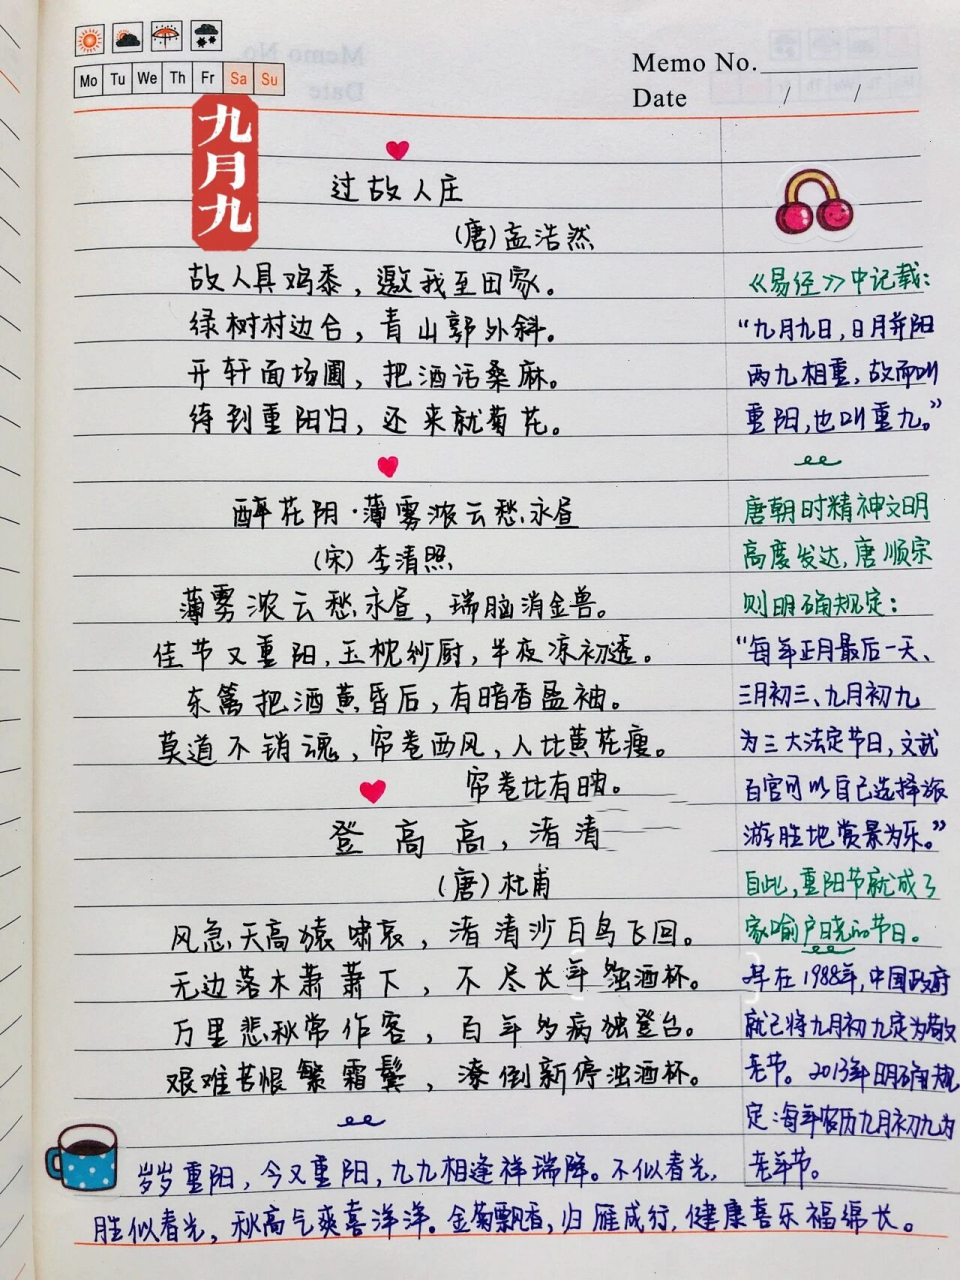 Memo No.
Date / /
Mo Tu We Th Fr Sa Su
九月九
过故人庄
(唐)孟浩然
故人具鸡黍，邀我至田家。
绿树村边合，青山郭外斜。
开轩面场圃，把酒话桑麻。
待到重阳日，还来就菊花。
醉花阴·薄雾浓云愁永昼
(宋)李清照
薄雾浓云愁永昼，瑞脑消金兽。
佳节又重阳，玉枕纱厨，半夜凉初透。
东篱把酒黄昏后，有暗香盈袖。
莫道不销魂，帘卷西风，人比黄花瘦。
帘卷比有暗。
登高高，渚清
(唐)杜甫
风急天高猿啸哀，渚清沙白鸟飞回。
无边落木萧萧下，不尽长年浊酒杯。
万里悲秋常作客，百年多病独登台。
艰难苦恨繁霜鬓，潦倒新停浊酒杯。
《易经》中记载：
“九月九日，日月并阳
两九相重，故而叫
重阳，也叫重九。”
唐朝时精神文明
高度发达，唐顺宗
则明确规定：
“每年正月最后一天、
三月初三、九月初九
为三大法定节日，文武
百官可以自己选择旅
游胜地赏景为乐。”
自此，重阳节就成了
家喻户晓的节日。
早在1988年，中国政府
就已将九月初九定为敬
老节。2013年明确规
定：每年农历九月初九为
老年节。
岁岁重阳，今又重阳，九九相逢祥瑞降。不似春光，
胜似春光，秋高气爽喜洋洋。金菊飘香，归雁成行，健康喜乐福绵长。